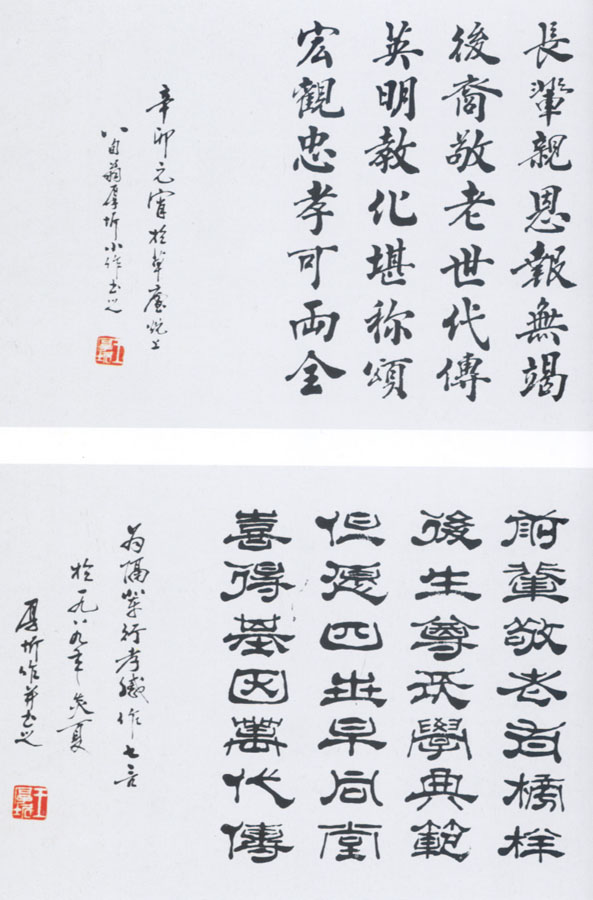 長輩親恩報無竭
後裔敬老世代傳
英明教化堪称頌
宏觀忠孝可兩全
辛卯元宵於草廬晚上
八旬翁厚圻小作書之
前輩敬老有榜样
後生尊長學典範
但愿四世早同堂
喜得基因萬代傳
為隔輩行孝感作七言
於一九八九年炎夏
厚圻作并書之